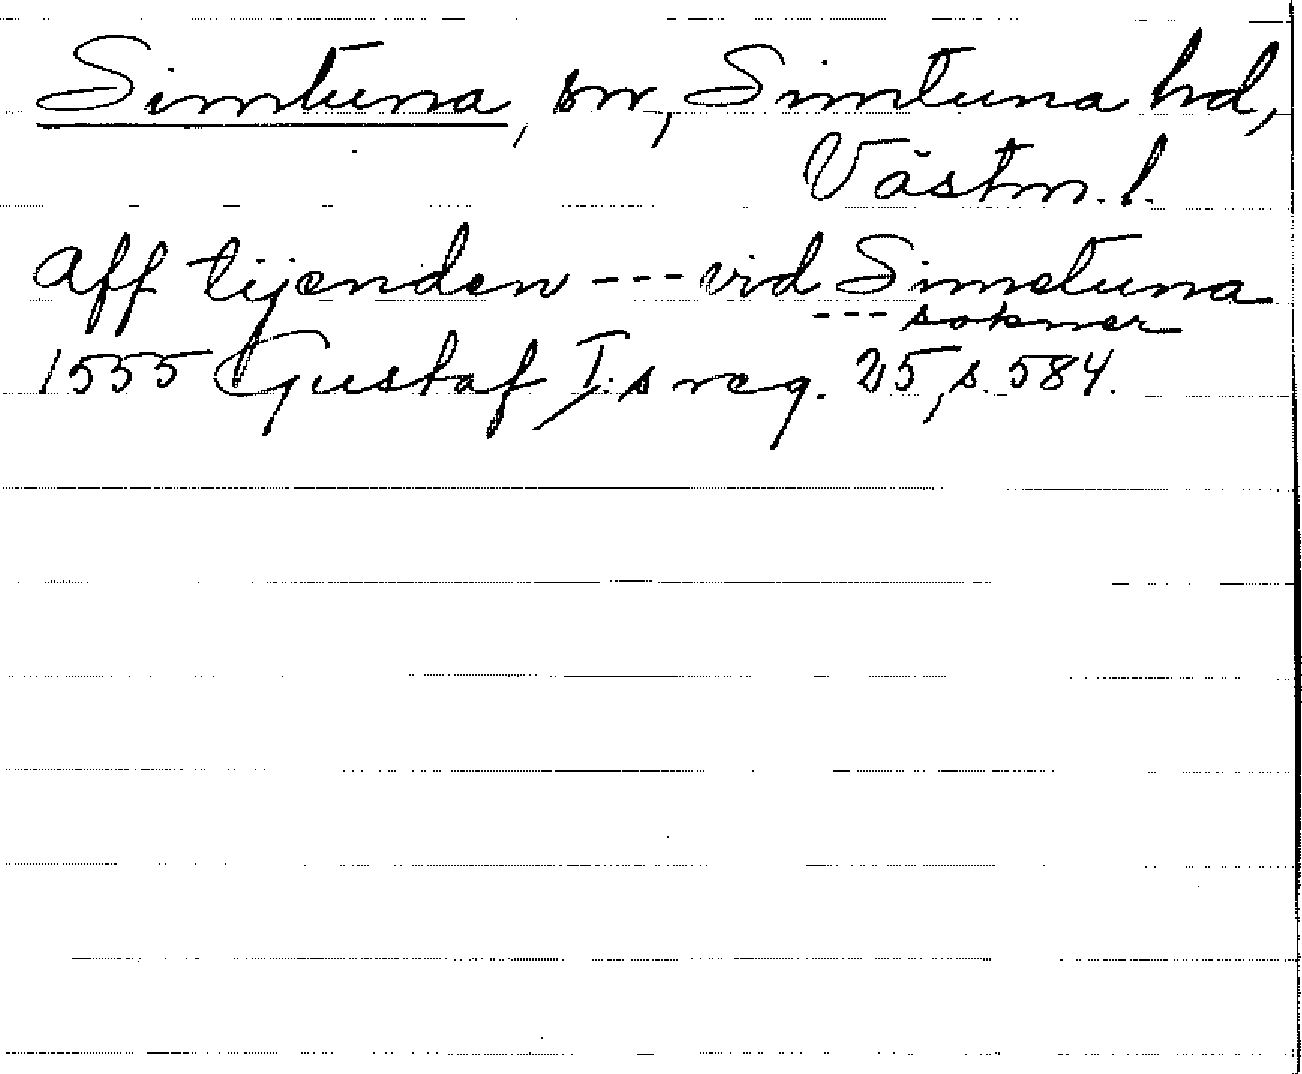 Simtuna, sn, Simtuna hd,
Västm. l.
aff tijenden --- vid Simetuna
--- sokner
1555 Gustaf I:s reg. 25, s. 584.